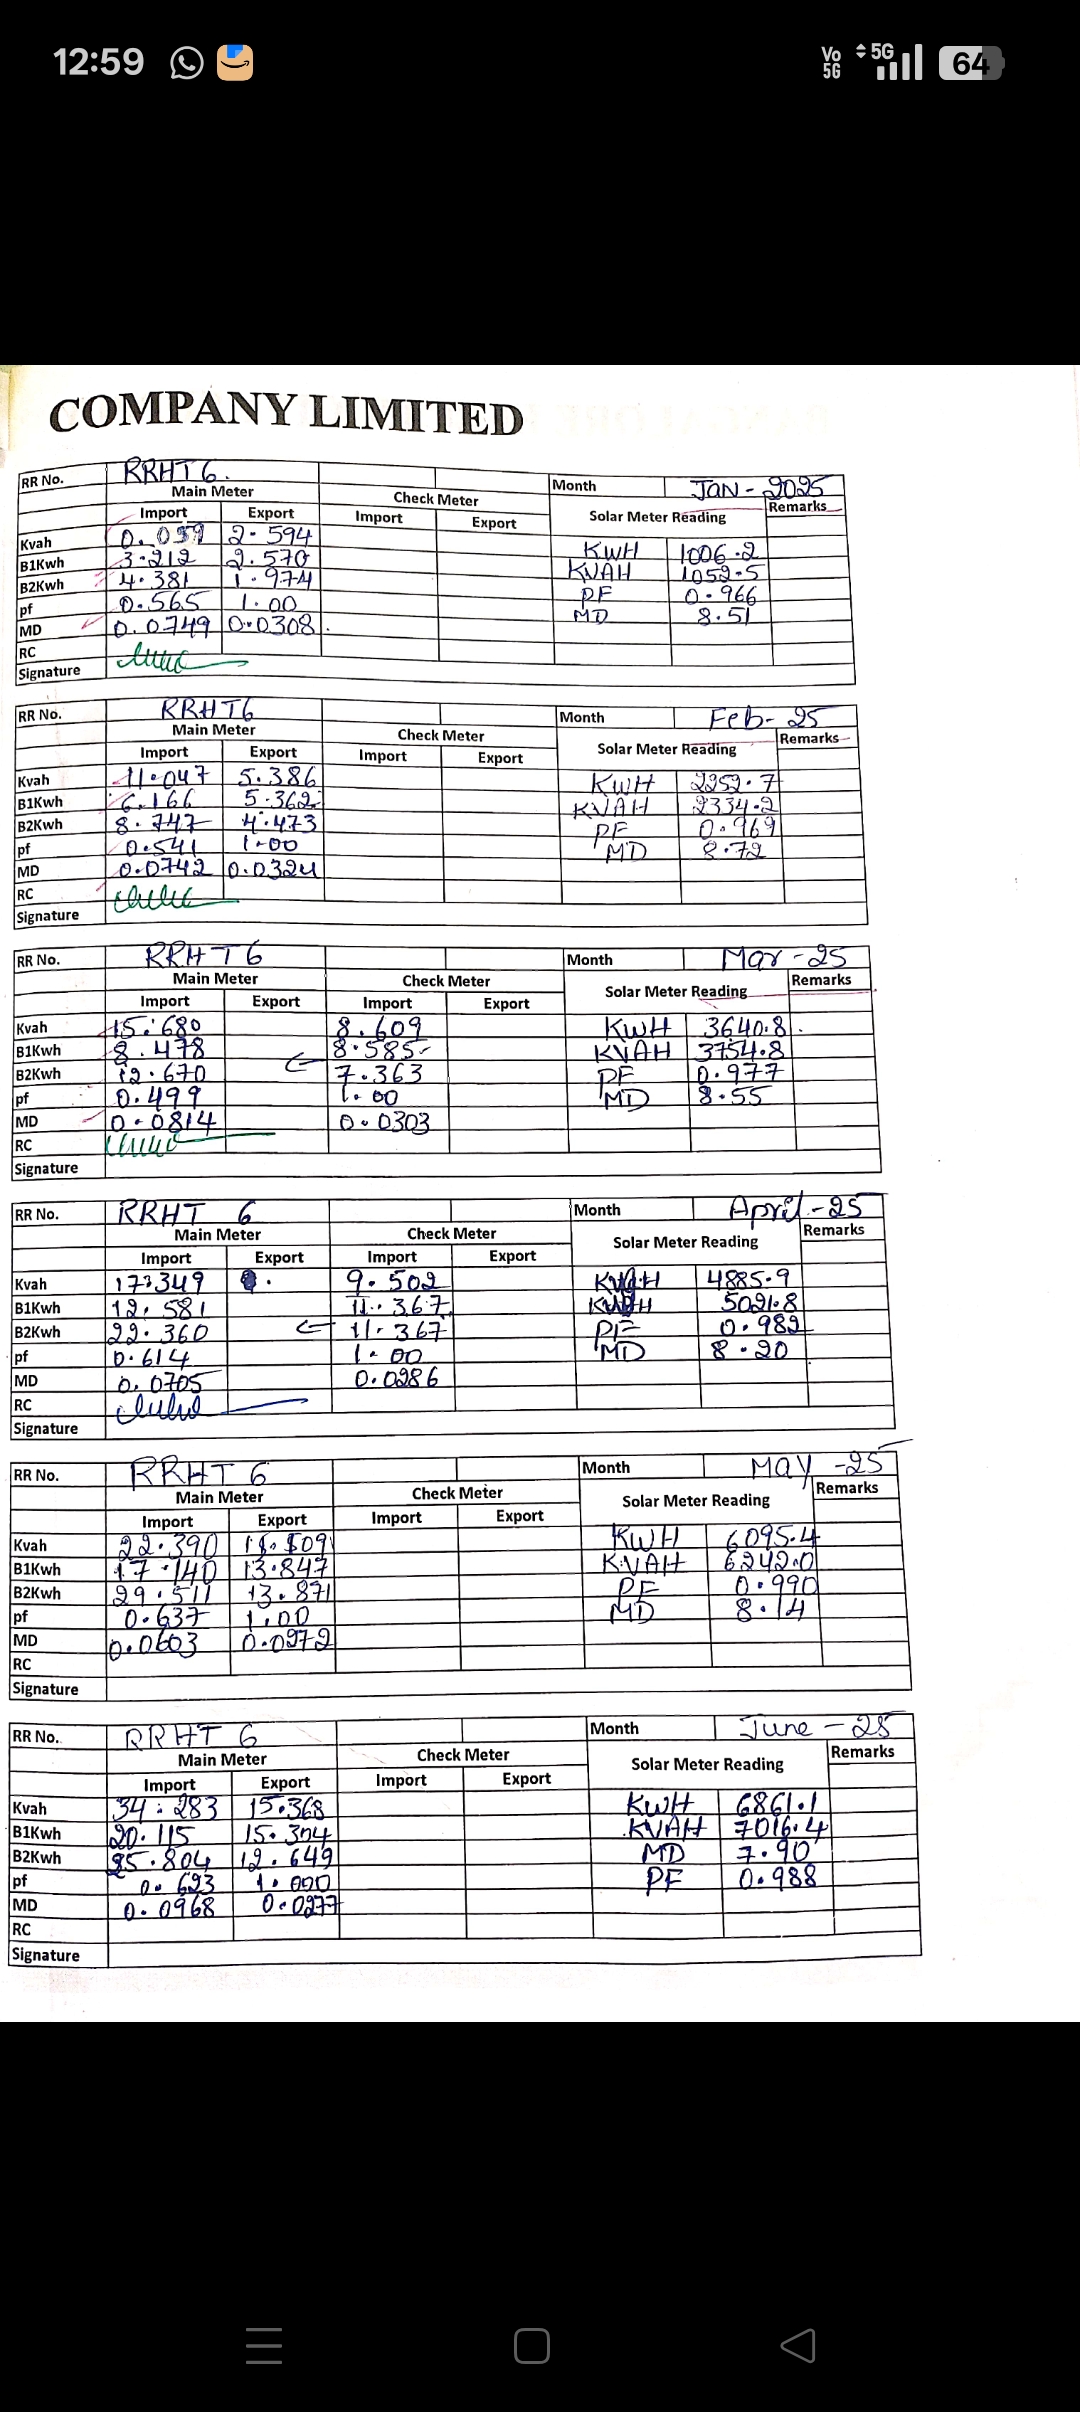 12:59 Vo 5G 5G 64
COMPANY LIMITED
RR No. RRHT6. Month JAN-2025
Main Meter Check Meter Solar Meter Reading Remarks
Import Export Import Export
Kvah 2.594 KWH 1006.2
B1Kwh 3.212 2.570 KVAH 1052.5
B2Kwh 4.381 1.974 PF 0.966
pf 0.565 1.00 MD 8.51
MD 0.0749 0.0308
RC
Signature
RR No. RRHT6 Month Feb-25
Main Meter Check Meter Solar Meter Reading Remarks
Import Export Import Export
Kvah 11.047 5.386 KWH 2252.7
B1Kwh 6.166 5.362 KVAH 2334.2
B2Kwh 8.747 4.473 PF 0.969
pf 0.541 1.00 MD 8.72
MD 0.0742 0.0324
RC
Signature
RR No. RRHT6 Month Mar-25
Main Meter Check Meter Solar Meter Reading Remarks
Import Export Import Export
Kvah 15.680 8.609 KWH 3640.8
B1Kwh 8.478 8.585 KVAH 3754.8
B2Kwh 12.670 7.363 PF 0.977
pf 0.499 1.00 MD 8.55
MD 0.0814 0.0303
RC
Signature
RR No. RRHT 6 Month April-25
Main Meter Check Meter Solar Meter Reading Remarks
Import Export Import Export
Kvah 9.502 4885.9
B1Kwh 12.581 11.367 5021.8
B2Kwh 22.360 11.367 PF 0.982
pf 0.614 1.00 MD 8.20
MD 0.0705 0.0286
RC
Signature
RR No. RRHT 6 Month May-25
Main Meter Check Meter Solar Meter Reading Remarks
Import Export Import Export
Kvah 22.390 KWH 6095.4
B1Kwh 17.140 13.847 KVAH 6242.0
B2Kwh 29.511 13.871 PF 0.990
pf 0.637 1.00 MD 8.14
MD 0.0603 0.0272
RC
Signature
RR No. RRHT 6 Month June-25
Main Meter Check Meter Solar Meter Reading Remarks
Import Export Import Export
Kvah 34.283 15.368 KWH 6861.1
B1Kwh 20.115 15.304 KVAH 7016.4
B2Kwh 12.649 MD 7.90
pf 0.623 1.000 PF 0.988
MD 0.0968 0.0277
RC
Signature